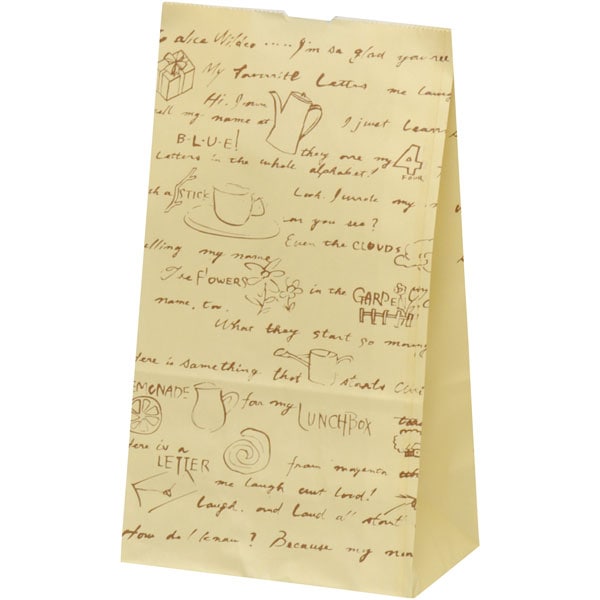 alice Wildco ..... I'm so glad you're
My Favourite Letters me laug
Hi, I'm
ell my name at I just learn
B·L·U·E!
they are my 4
FOUR
Letters in the whole alphabet!
h a STICK Look. I wrote my
can you see?
Even the CLOUDS
elling my name
The FLOWERS in the GARDE
name, too.
What they start so
ere is something that starts
EMONADE for my LUNCHBOX
here is a
LETTER from magenta
me laugh out loud!
laugh, and Loud a start
How do I know? Because my